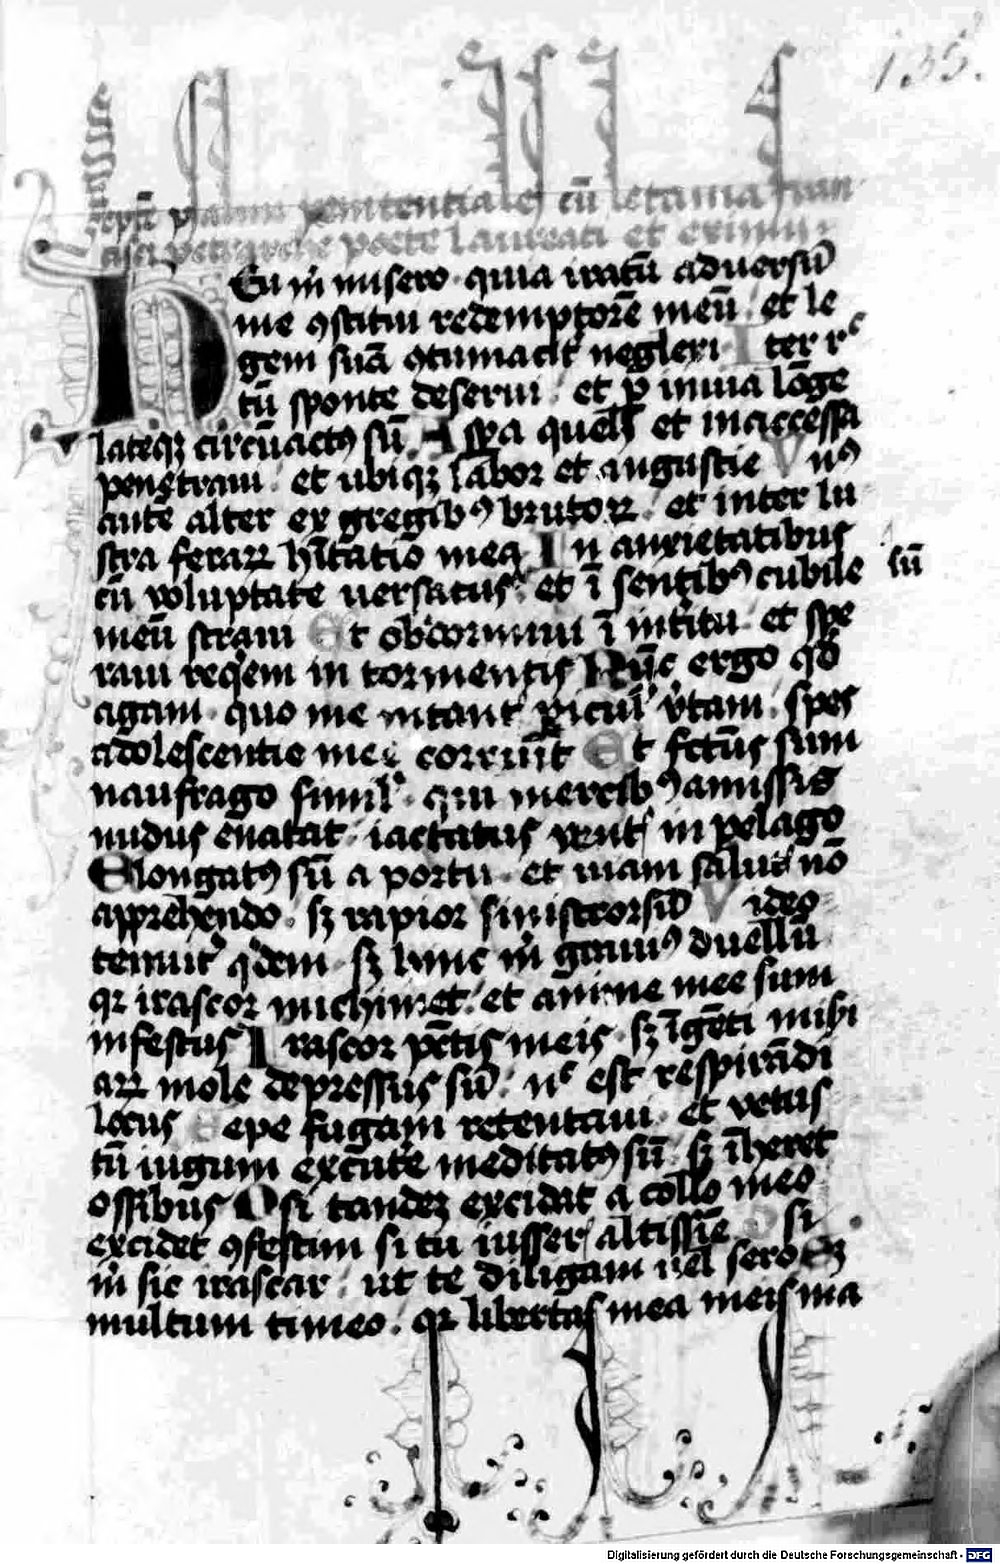 135.
psalmi penitentiales cū letania fran
petrarche poete laureati et eximii
Heu m̄ misero quia iratū aduersū
me ꝯstitui redemptorē meū et le
gem suā ꝯtumacit̄ neglexi Iter rc̄
tū sponte deserui et p̄ inuia lōge
lateqꝫ circūactꝰ sū Aspa quel et inaccessa
penetraui et ubiqꝫ labor et angustie Vnꝰ
aut̄ alter ex gregibꝰ brutoꝝ et inter lu
stra feraꝝ hītatio mea In anxietatibus
cū voluptate uersatus et ī sentibꝰ cubile sū
meū straui Et obdormiui ī intitu et spe
raui reqem in tormentis Nūc ergo qd̄
agam quo me intant picul v̄tam spes
adolescentie mee corruūt Et fctūs sum
naufrago simil qui mercibꝰ amissis
nudus enatat iactatus vent in pelago
Elongatꝰ sū a portu et uiam salut nō
apprehendo sꝫ rapior sinistrorsū Video
tenuit qdem sꝫ hinc m̄ grauiꝰ duellū
qꝛ irascor michimet et anime mee sum
infestus Irascor pctis meis sꝫ īgēti mihi
aꝝ mole depressus sū nc̄ est respirādi
locus Sepe fugam retentaui et vetus
tū iugum excute meditatꝰ sū sꝫ īheret
ossibus O si tandeꝫ excidat a collo meo
excidet ꝯfestim si tu iusser altissie O si
m̄ sic irascar ut te diligam uel sero Sꝫ
multum timeo qꝛ libertas mea meis ma
Digitalisierung gefördert durch die Deutsche Forschungsgemeinschaft - DFG